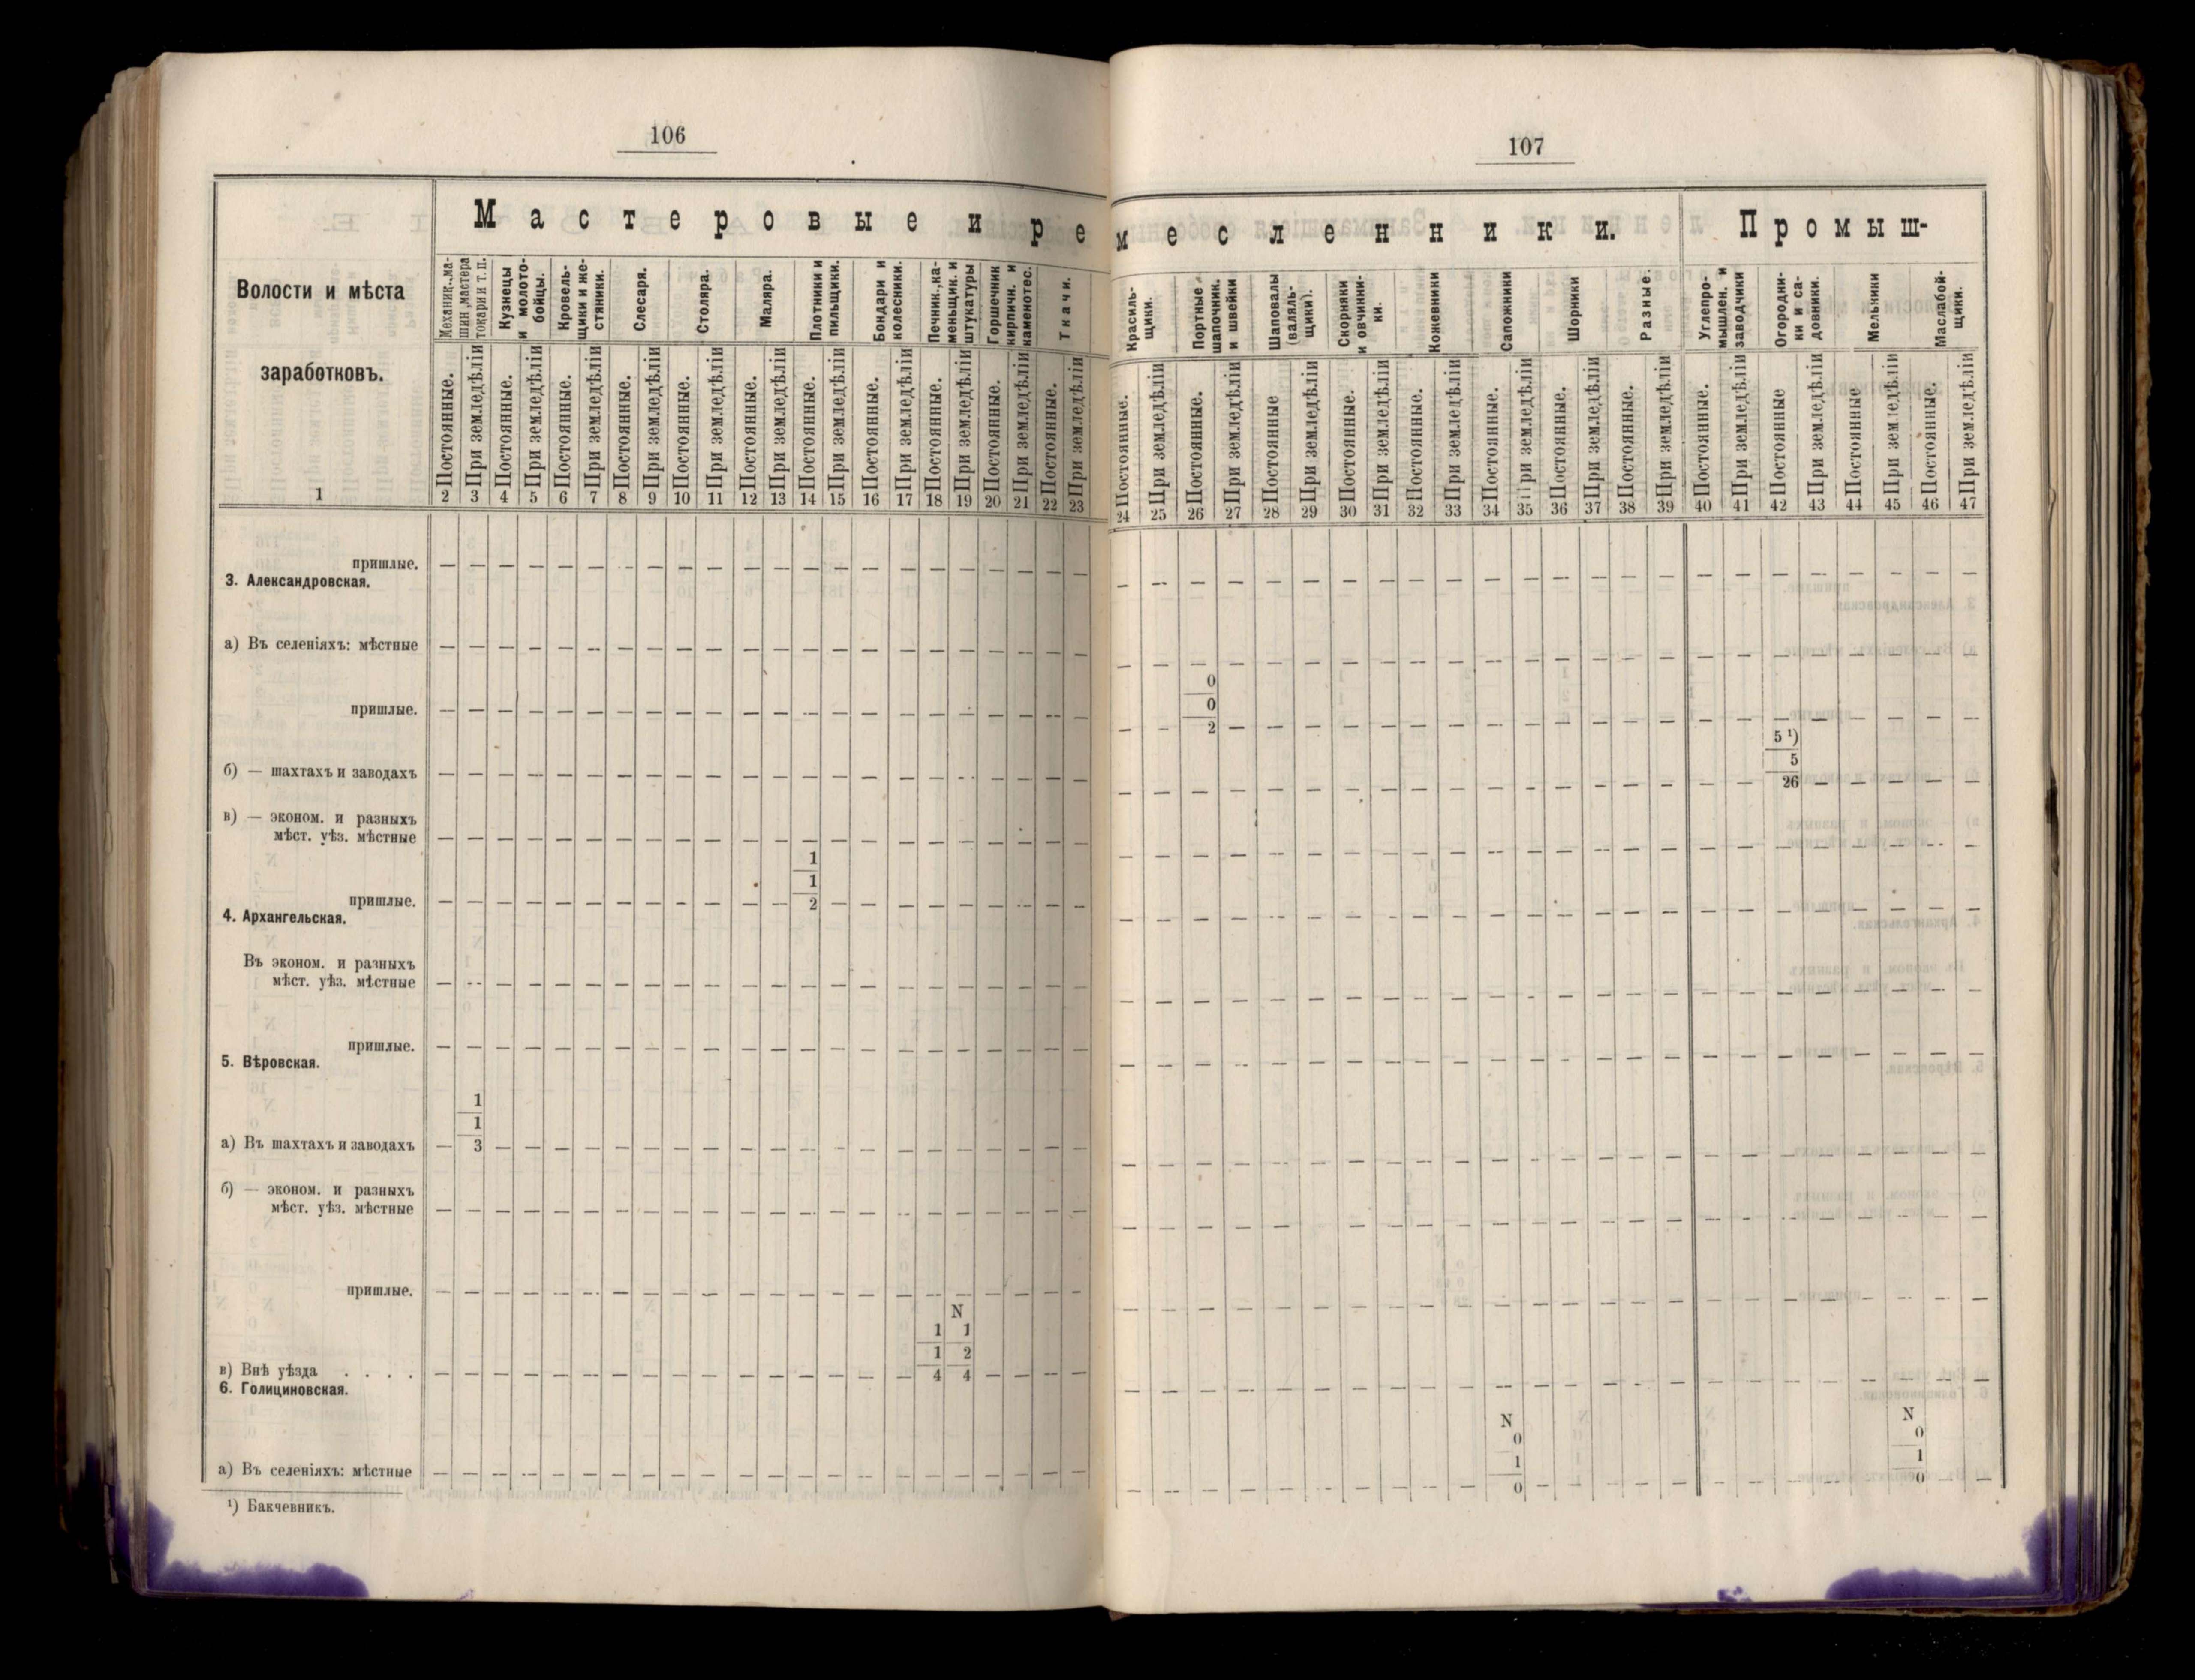 106
Мастеровые и ре
Волости и мѣста
заработковъ.
Механик., ма-
шин., мастера
токари и т. п.
Кузнецы
и молото-
бойцы.
Кровель-
щики и же-
стяники.
Слесаря.
Столяра.
Маляра.
Плотники и
пильщики.
Бондари и
колесники.
Печник., ка-
меньщик. и
штукатуры
Горшечник
кирпичн. и
каменотес.
Ткачи.
Постоянные. При земледѣліи Постоянные. При земледѣліи Постоянные. При земледѣліи Постоянные. При земледѣліи Постоянные. При земледѣліи Постоянные. При земледѣліи Постоянные. При земледѣліи Постоянные. При земледѣліи Постоянные. При земледѣліи Постоянные. При земледѣліи Постоянные. При земледѣліи
1 2 3 4 5 6 7 8 9 10 11 12 13 14 15 16 17 18 19 20 21 22 23
пришлые. — — — — — — — — — — — — — — — — — — — — — —
3. Александровская.
а) Въ селеніяхъ: мѣстные — — — — — — — — — — — — — — — — — — — — — —
пришлые. — — — — — — — — — — — — — — — — — — — — — —
б) — шахтахъ и заводахъ — — — — — — — — — — — — — — — — — — — — — —
в) — эконом. и разныхъ
мѣст. уѣз. мѣстные — — — — — — — — — — — — — — — — — — — — — —
1
1
пришлые. — — — — — — — — — — — — 2 — — — — — — — — —
4. Архангельская.
Въ эконом. и разныхъ
мѣст. уѣз. мѣстные — — — — — — — — — — — — — — — — — — — — — —
пришлые. — — — — — — — — — — — — — — — — — — — — — —
5. Вѣровская.
1
1
а) Въ шахтахъ и заводахъ — 3 — — — — — — — — — — — — — — — — — — — —
б) — эконом. и разныхъ
мѣст. уѣз. мѣстные — — — — — — — — — — — — — — — — — — — — — —
пришлые. — — — — — — — — — — — — — — — — — — — — — —
N
1 1
1 2
в) Внѣ уѣзда . . . . — — — — — — — — — — — — — — — — 4 4 — — — —
6. Голициновская.
а) Въ селеніяхъ: мѣстные — — — — — — — — — — — — — — — — — — — — — —
¹) Бакчевникъ.
107
месленники. Промыш-
Красиль-
щики.
Портные
шапочник.
и швейки
Шаповалы
(валяль-
щики).
Скорняки
и овчинни-
ки.
Кожевники
Сапожники
Шорники
Разные.
Углепро-
мышлен. и
заводчики
Огородни-
ки и са-
довники.
Мельники
Маслабой-
щики.
Постоянные. При земледѣліи Постоянные. При земледѣліи Постоянные При земледѣліи Постоянные. При земледѣліи Постоянные. При земледѣліи Постоянные. При земледѣліи Постоянные. При земледѣліи Постоянные. При земледѣліи Постоянные. При земледѣліи Постоянные При земледѣліи Постоянные При земледѣліи Постоянные. При земледѣліи
24 25 26 27 28 29 30 31 32 33 34 35 36 37 38 39 40 41 42 43 44 45 46 47
— — — — — — — — — — — — — — — — — — — — — — — —
— — — — — — — — — — — — — — — — — — — — — — — —
0
0
— — 2 — — — — — — — — — — — — — — — — — — — — —
5 ¹)
5
— — — — — — — — — — — — — — — — — — 26 — — — — —
— — — — — — — — — — — — — — — — — — — — — — — —
— — — — — — — — — — — — — — — — — — — — — — — —
— — — — — — — — — — — — — — — — — — — — — — — —
— — — — — — — — — — — — — — — — — — — — — — — —
— — — — — — — — — — — — — — — — — — — — — — — —
— — — — — — — — — — — — — — — — — — — — — — — —
— — — — — — — — — — — — — — — — — — — — — — — —
— — — — — — — — — — — — — — — — — — — — — — — —
N N
0 0
1 1
— — — — — — — — — — 0 — — — — — — — — — — 0 — —